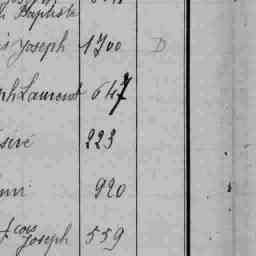 Baptiste
Joseph 1700 D
ph Laurent 647
seré 223
920
fcois Joseph 559